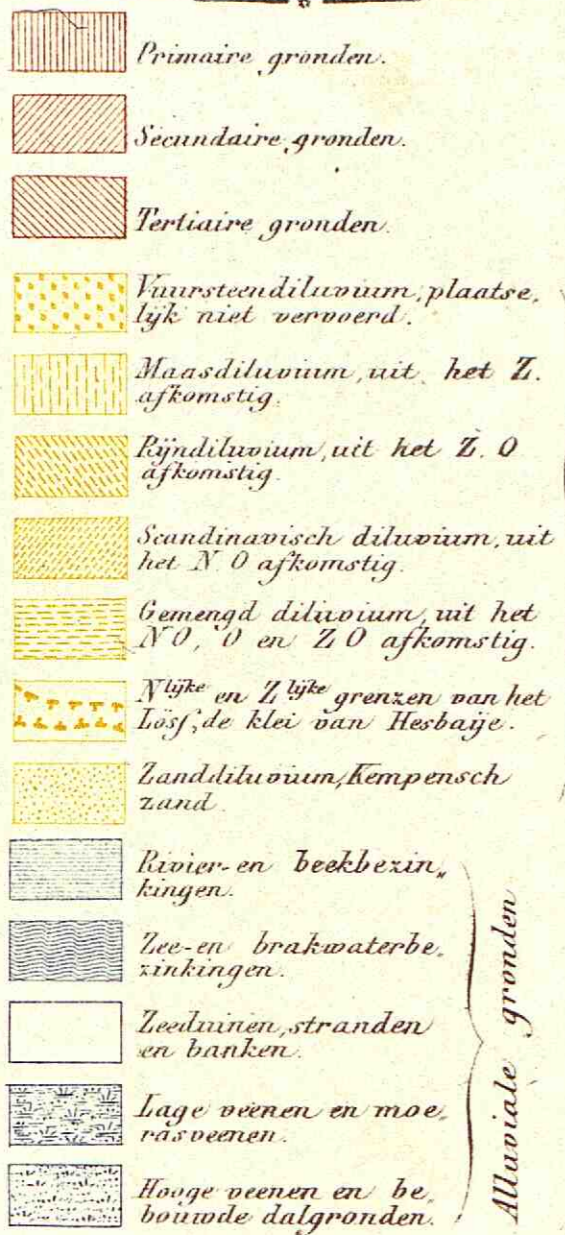 Primaire gronden.
Secundaire gronden.
Tertiaire gronden.
Vuursteendiluvium, plaatse„
lijk niet vervoerd.
Maasdiluvium, uit het Z.
afkomstig.
Rijndiluvium, uit het Z. O
afkomstig.
Scandinavisch diluvium, uit
het N O afkomstig.
Gemengd diluvium, uit het
N O, O en Z O afkomstig.
N lijke en Z lijke grenzen van het
Löss, de klei van Hesbaije.
Zanddiluvium, Kempensch
zand.
Rivier- en beekbezin„
kingen.
Zee- en brakwaterbe„
zinkingen.
Zeeduinen, stranden
en banken.
Lage veenen en moe„
rasveenen.
Hooge veenen en be„
bouwde dalgronden.
Alluviale gronden